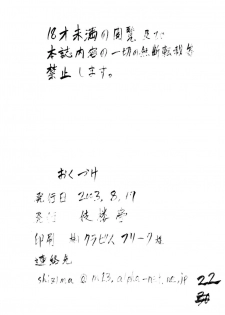 18才未満の閲覧及び
本誌内容の一切の無断転載を
禁止します。
おくづけ
発行日 2003.8.17
発行
印刷 ㈱クラビズフリーク様
連絡先
shizima @
22